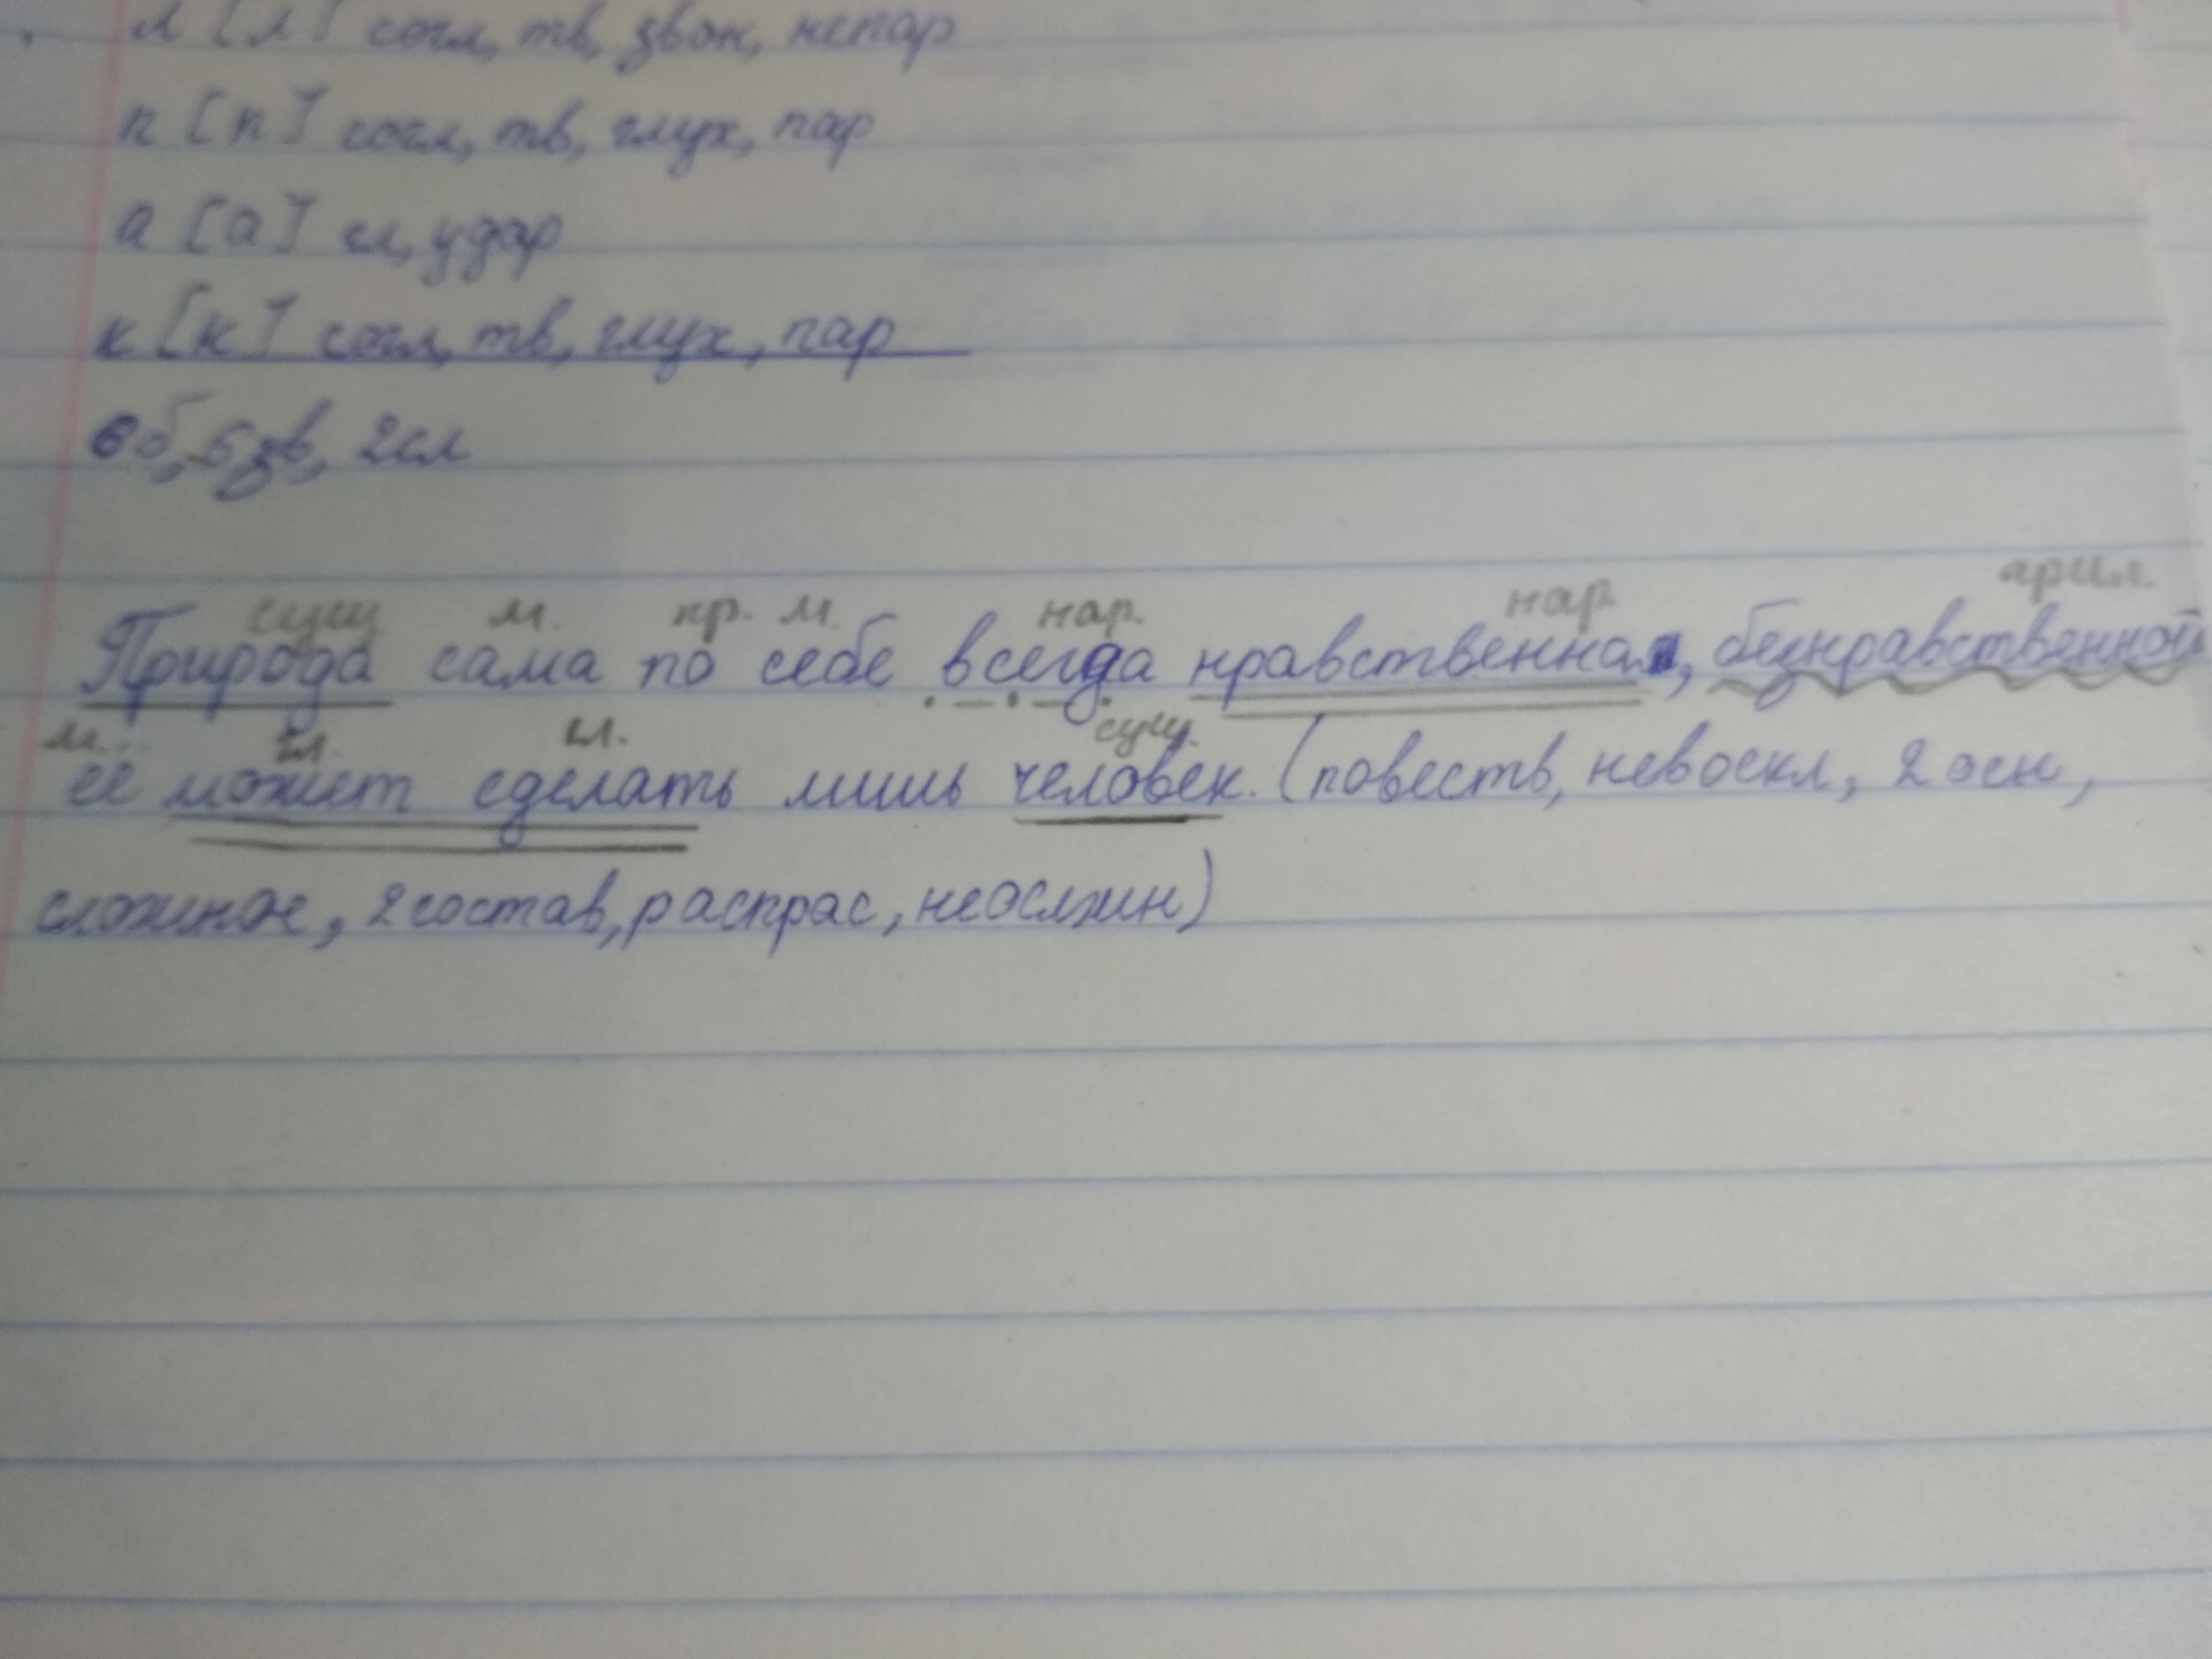 л [л] согл, тв, звон, непар
п [п] согл, тв, глух, пар
а [а] гл, удар
к [к] согл, тв, глух, пар
6б, 6зв, 2сл
сущ. м. пр. м. нар. нар. прил.
Природа сама по себе всегда нравственна, безнравственной
м. гл. гл. сущ.
её может сделать лишь человек. (повеств, невоскл, 2 осн,
сложное, 2состав, распрас, неослжн)